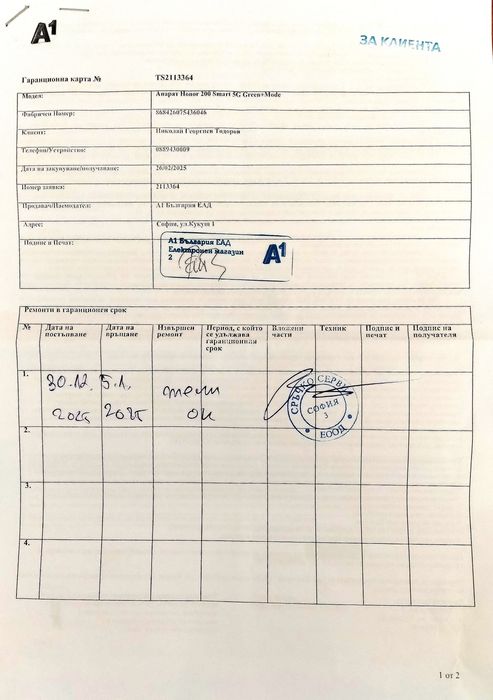 A1
ЗА КЛИЕНТА
Гаранционна карта № TS2113364
Модел: Апарат Honor 200 Smart 5G Green+Mode
Фабричен Номер: 868426075436046
Клиент: Николай Георгиев Тодоров
Телефон/Устройство: 0889430009
Дата на закупуване/получаване: 26/02/2025
Номер заявка: 2113364
Продавач/Наемодател: А1 България ЕАД
Адрес: София, ул.Кукуш 1
Подпис и Печат:
А1 България ЕАД
Електронен магазин
2
A1
Ремонти в гаранционен срок
№ Дата на постъпване Дата на връщане Извършен ремонт Период, с който се удължава гаранционния срок Вложени части Техник Подпис и печат Подпис на получателя
1. 30.12. 5.1.
2025
ок
СРЪЧКО СЕРВИЗ
СОФИЯ
3
ЕООД
2.
3.
4.
1 от 2